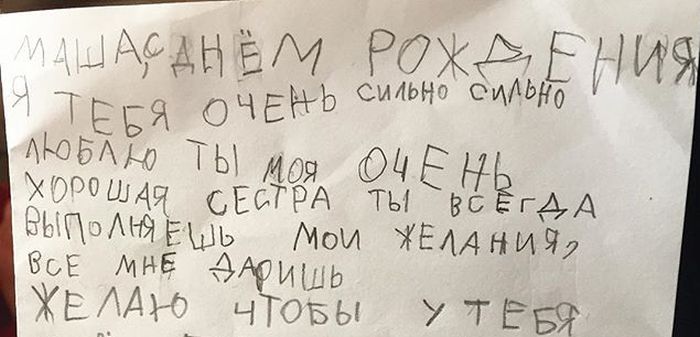 МАША, С ДНЁМ РОЖДЕНИЯ
Я ТЕБЯ ОЧЕНЬ СИЛЬНО СИЛЬНО
ЛЮБЛЮ ТЫ МОЯ ОЧЕНЬ
ХОРОШАЯ СЕСТРА ТЫ ВСЕГДА
ВЫПОЛНЯЕШЬ МОИ ЖЕЛАНИЯ,
ВСЕ МНЕ ДАРИШЬ
ЖЕЛАЮ ЧТОБЫ У ТЕБЯ